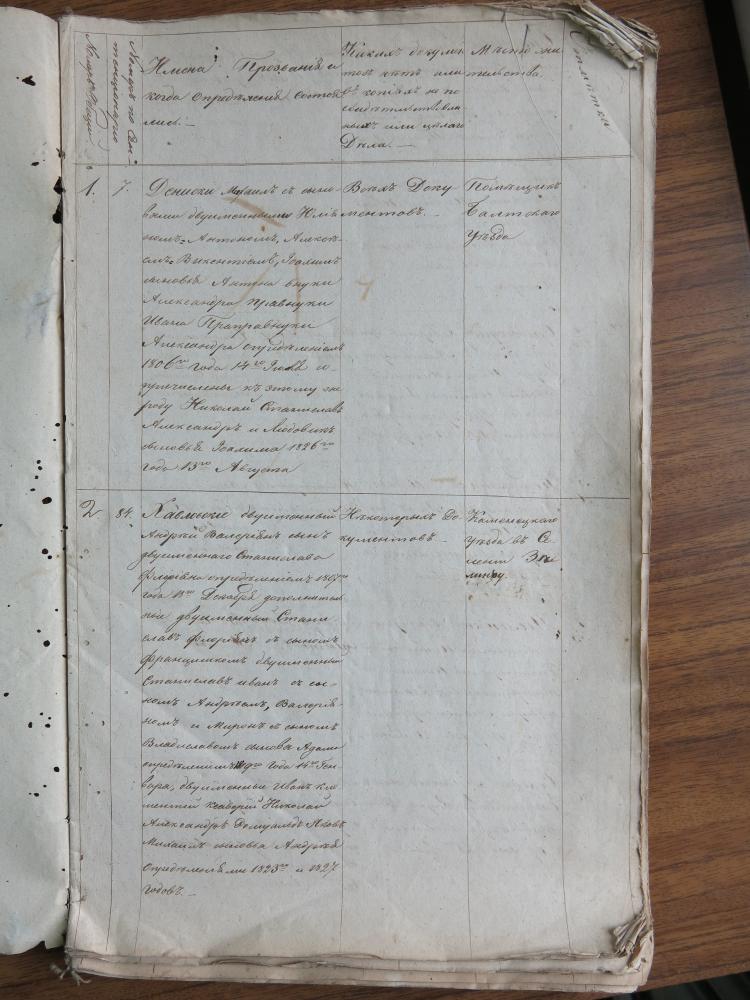 Имена Прозвания и
когда определения состоя
лись. —
Какихъ докумен
товъ нѣтъ или
въ копіяхъ не по
свидѣтельствован
ныхъ или цѣлаго
Дѣла. —
Мѣсто жи
тельства.
Отмѣтки
1.
7.
Дениски Михаилъ съ сыно
вами двуименными
Антономъ, Алексѣ
емъ Викентіемъ, Іоакимъ
сыновья Антона внуки
Александра правнуки
Ивана Праправнуки
Александра опредѣленіемъ
1806го года 14го
сопричислены къ этому же
роду Николай Станиславъ
Александръ и Людовикъ
сыновья Іоакима 1826го
года 13го Августа
Всѣхъ Доку
ментовъ. —
Помѣщикъ
Балтскаго
уѣзда
2
84.
двуименный
Андрей Валеріянъ сынъ
двуименнаго Станислава
Флоріяна опредѣленіемъ
года Декабря дополнитель
ные двуименный Стани
славъ Флоріянъ съ сыномъ
Францишкомъ двуименный
Станиславъ Иванъ съ сы
номъ Андреемъ, Валерія
номъ и Миронъ съ сыномъ
Владиславомъ сынова Адама
опредѣленіемъ года 14го Ген
варя, двуименные Иванъ Кли
ментій Ксаверій Николай
Александръ Ромуальдъ Яковъ
Михаилъ сыновья Андрея
Опредѣленіями 1823го и 1827
годовъ. —
Нѣкоторыхъ До
кументовъ —
Каменецкаго
уѣзда въ С.